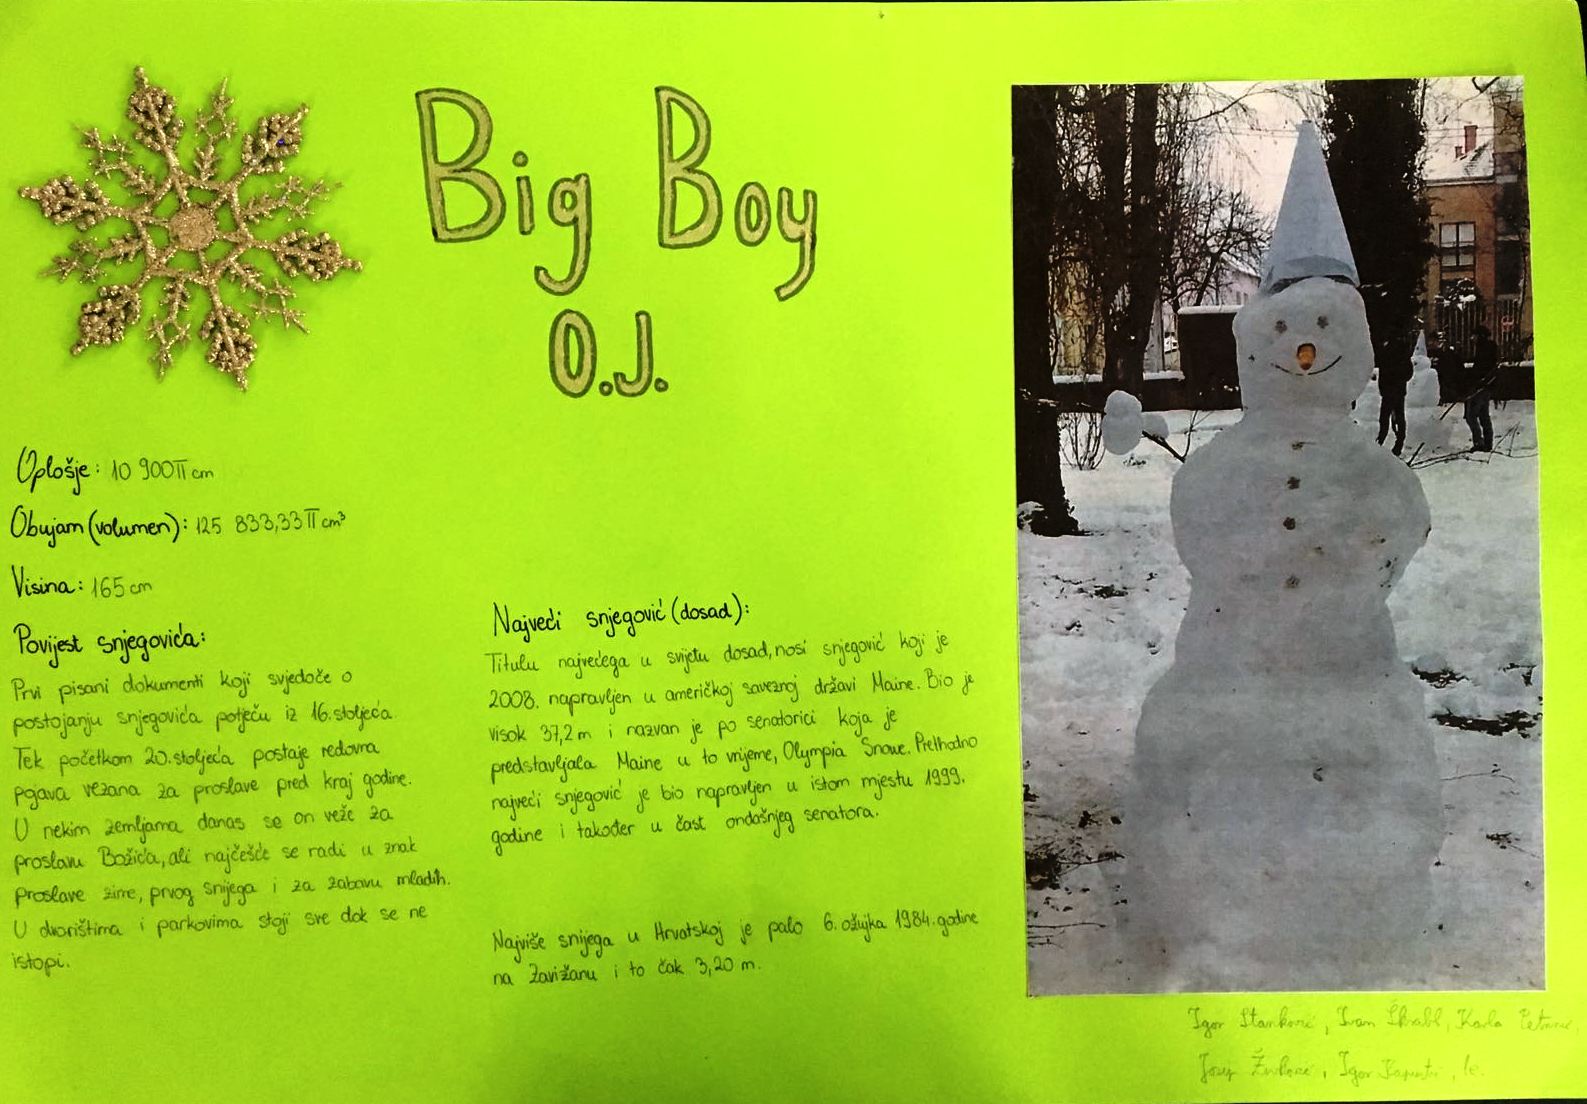 Big Boy
O.J.
Oplošje: 10 900π cm
Obujam (volumen): 125 833,33π cm³
Visina: 165 cm
Povijest snjegovića:
Prvi pisani dokumenti koji svjedoče o
postojanju snjegovića potječu iz 16. stoljeća.
Tek početkom 20. stoljeća postaje redovna
pojava vezana za proslave pred kraj godine.
U nekim zemljama danas se on veže za
proslavu Božića, ali najčešće se radi u znak
proslave zime, prvog snijega i za zabavu mladih.
U dvorištima i parkovima stoji sve dok se ne
istopi.
Najveći snjegović (dosad):
Titulu najvećega u svijetu dosad, nosi snjegović koji je
2008. napravljen u američkoj saveznoj državi Maine. Bio je
visok 37,2 m i nazvan je po senatorici koja je
predstavljala Maine u to vrijeme, Olympia Snowe. Prethodno
najveći snjegović je bio napravljen u istom mjestu 1999.
godine i također u čast ondašnjeg senatora.
Najviše snijega u Hrvatskoj je palo 6. ožujka 1984. godine
na Zavižanu i to čak 3,20 m.
Igor Stanković, Ivan Škrabl, Karla
Josip, Igor, 1e.